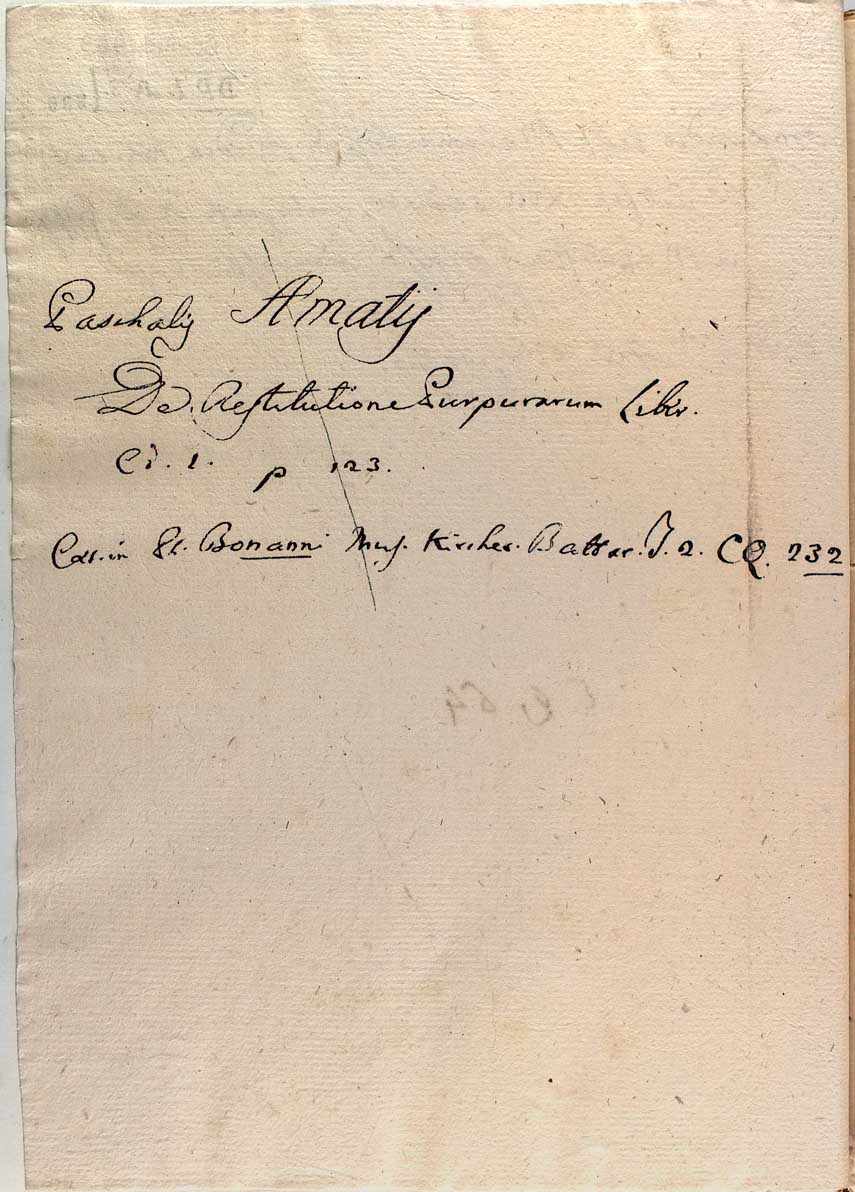 Paschalij Amatij
De. Restitutione Purpurarum Libr.
Ed. 1. p 123.
in Bonanni Mus. Kircher. Battar. T. 2. CQ. 232